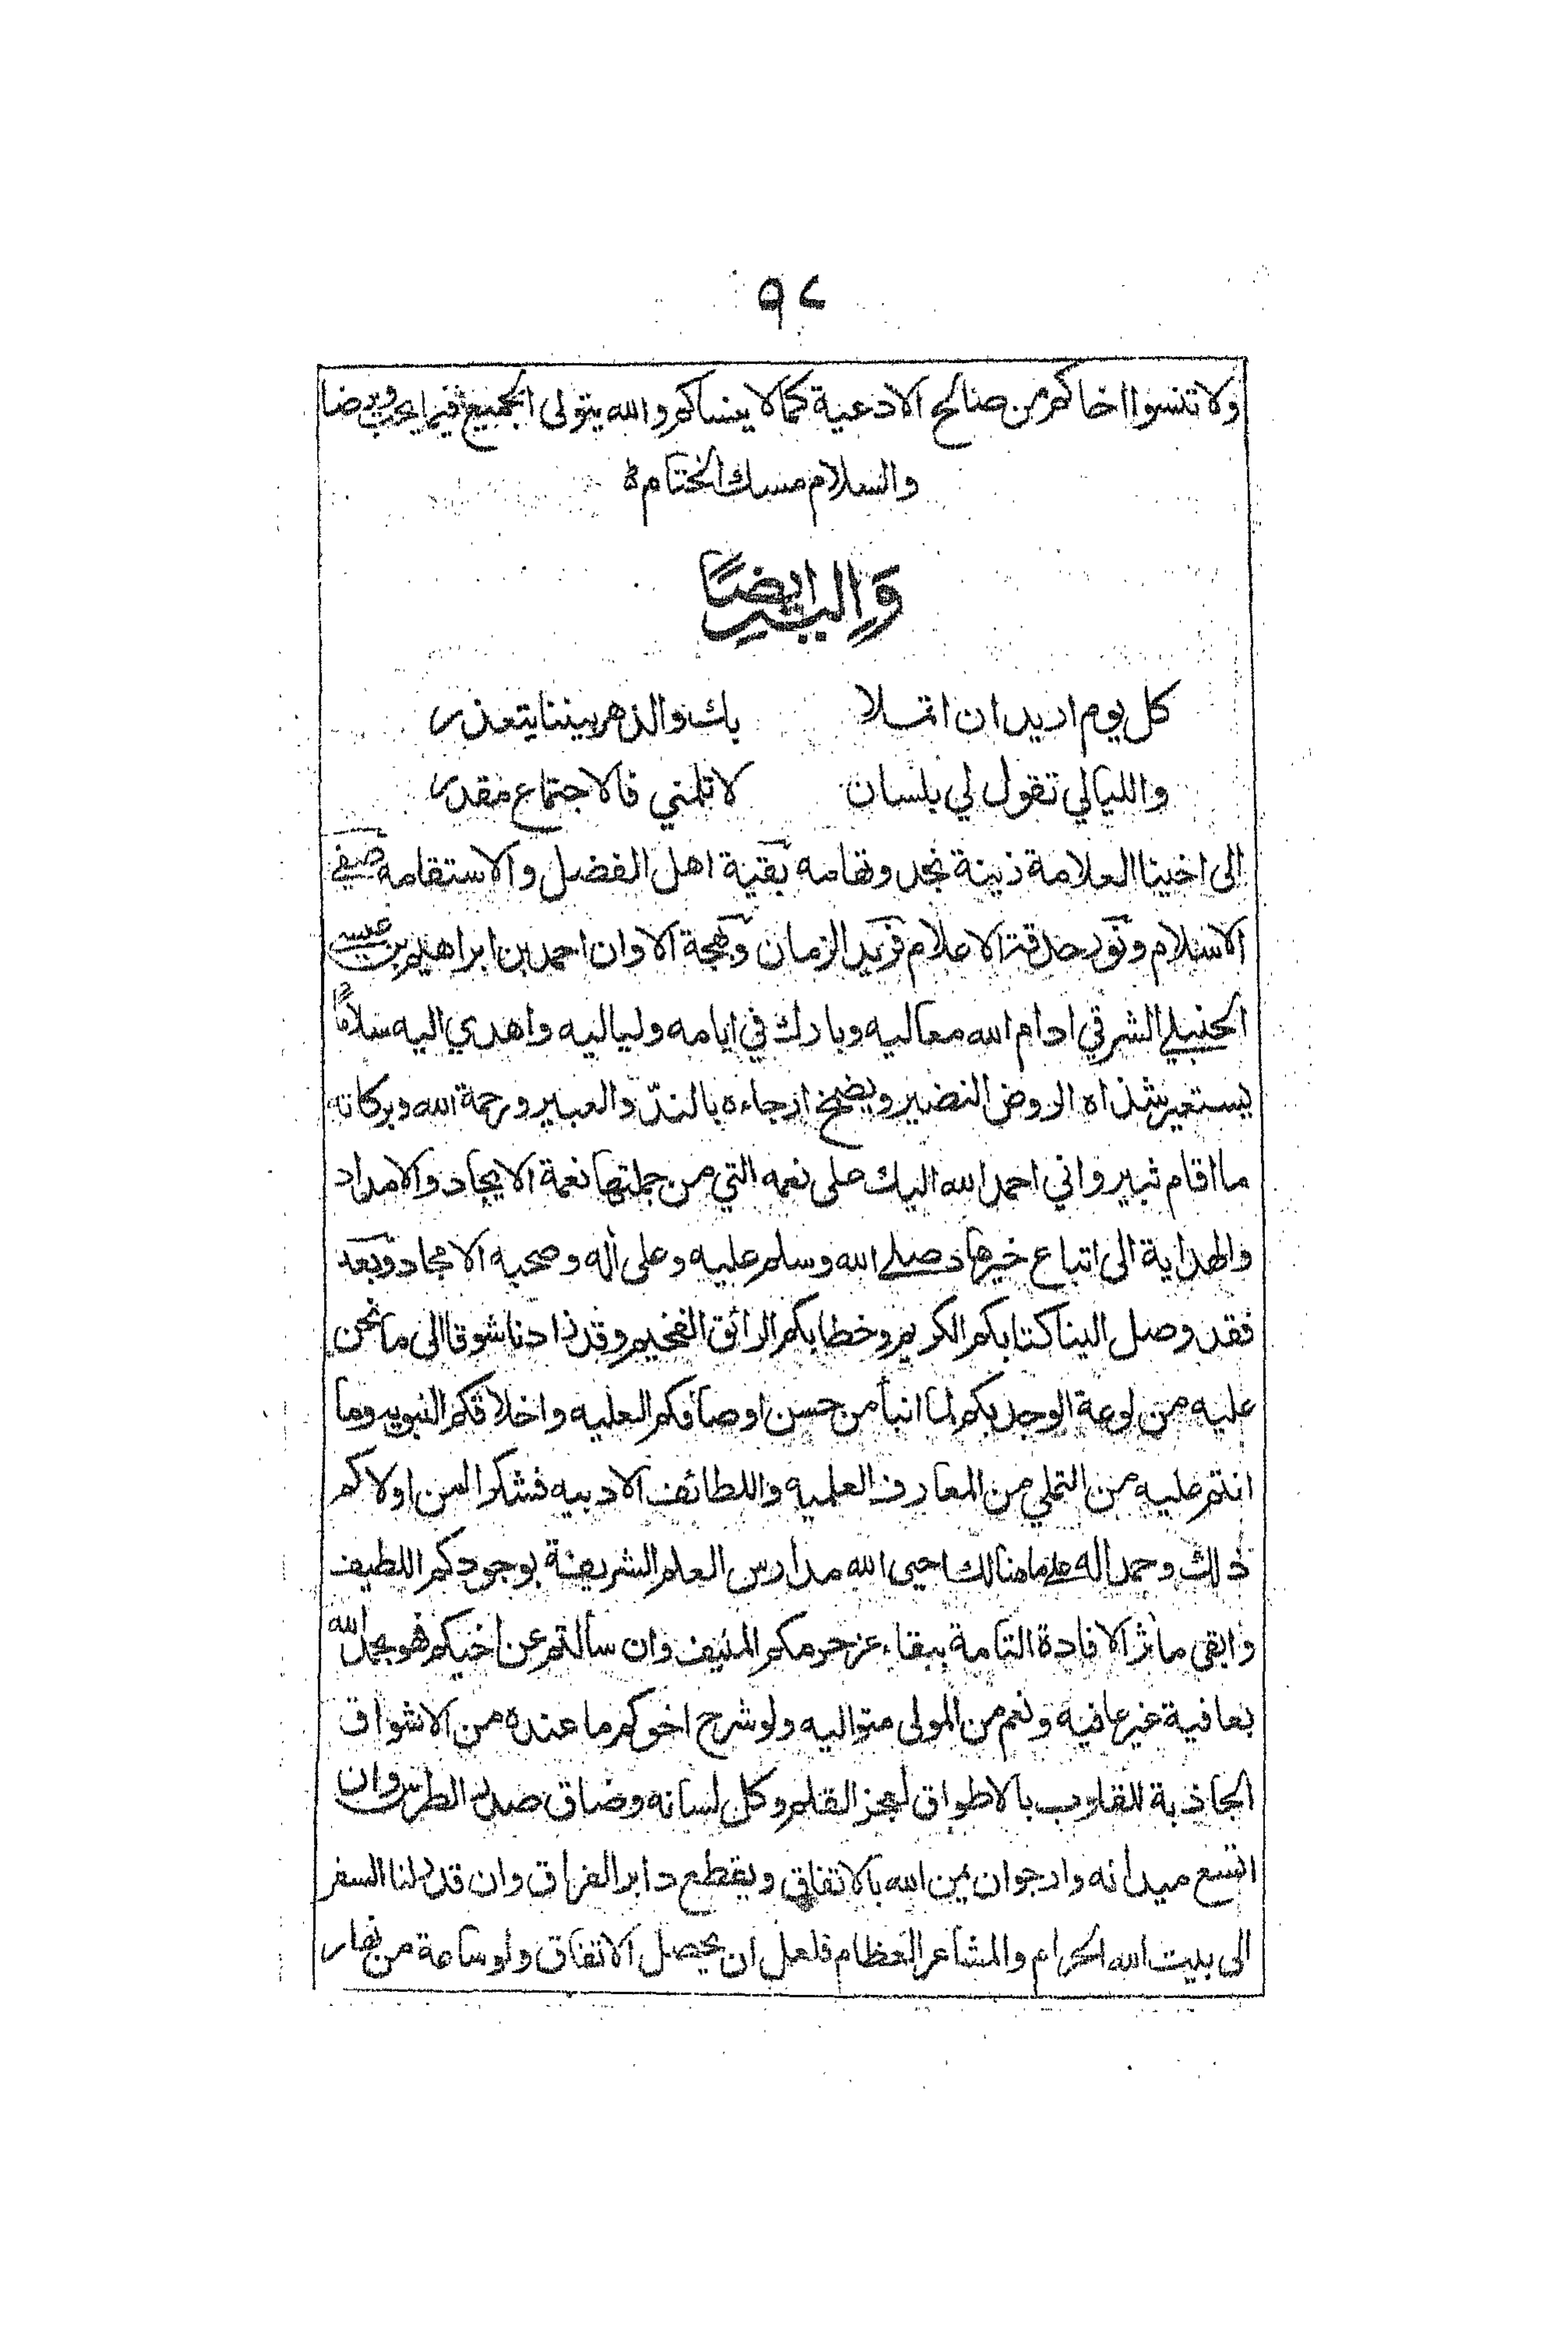 ٩٢
ولا تنسوا اخاكم من صالح الادعية كما لا ينساكم والله يتولى الجميع فيما يحب ويرضا
والسلام مسك الختام
وَاِليهِ ايضًا
كل يوم اريد ان اتملا بك والدهر بيننا يتعذر
والليالي تقول لي بلسان لا تلمني فالاجتماع مقدر
الى اخينا العلامة زينة نجد وتهامه بقية اهل الفضل والاستقامه صفي
الاسلام ونور حدقة الاعلام فريد الزمان وبهجة الاوان احمد بن ابراهيم بن عيسى
الحنبلي الشرقي ادام الله معاليه وبارك في ايامه ولياليه واهدي اليه سلامًا
يستعير شذاه الروض النضير ويضمخ ارجاءه بالندّ والعبير ورحمة الله وبركاته
ما اقام ثبير واني احمد الله اليك على نعمه التي من جملتها نعمة الايجاد والامداد
والهداية الى اتباع خير هاد صلى الله وسلم عليه وعلى أله وصحبه الامجاد وبعد
فقد وصل الينا كتابكم الكريم وخطابكم الرائق الفخيم وقد زادنا شوقا الى ما نحن
عليه من لوعة الوجد بكم لما انبأ من حسن اوصافكم العليه واخلاقكم النبويه وما
انتم عليه من التحلي من المعارف العلميه واللطائف الادبيه فشكرا لمن اولاكم
ذلك وحمدا له على ما هنالك احيى الله مدارس العلم الشريفة بوجودكم اللطيف
وابقى مأثر الافادة التامة ببقاء عز حرمكم المنيف وان سألتم عن اخيكم فهو بحمد الله
بعافية غير عافيه ونعم من المولى متواليه ولو شرح اخوكم ما عنده من الاشواق
الجاذبة للقلوب بالاطواق لعجز القلم وكل لسانه وضاق صدر الطرس وان
اتسع ميدانه وارجو ان يمن الله بالاتفاق ويقطع دابر الفراق وان قدر لنا السفر
الى بيت الله الحرام والمشاعر العظام فلعل ان يحصل الاتفاق ولو ساعة من نهار